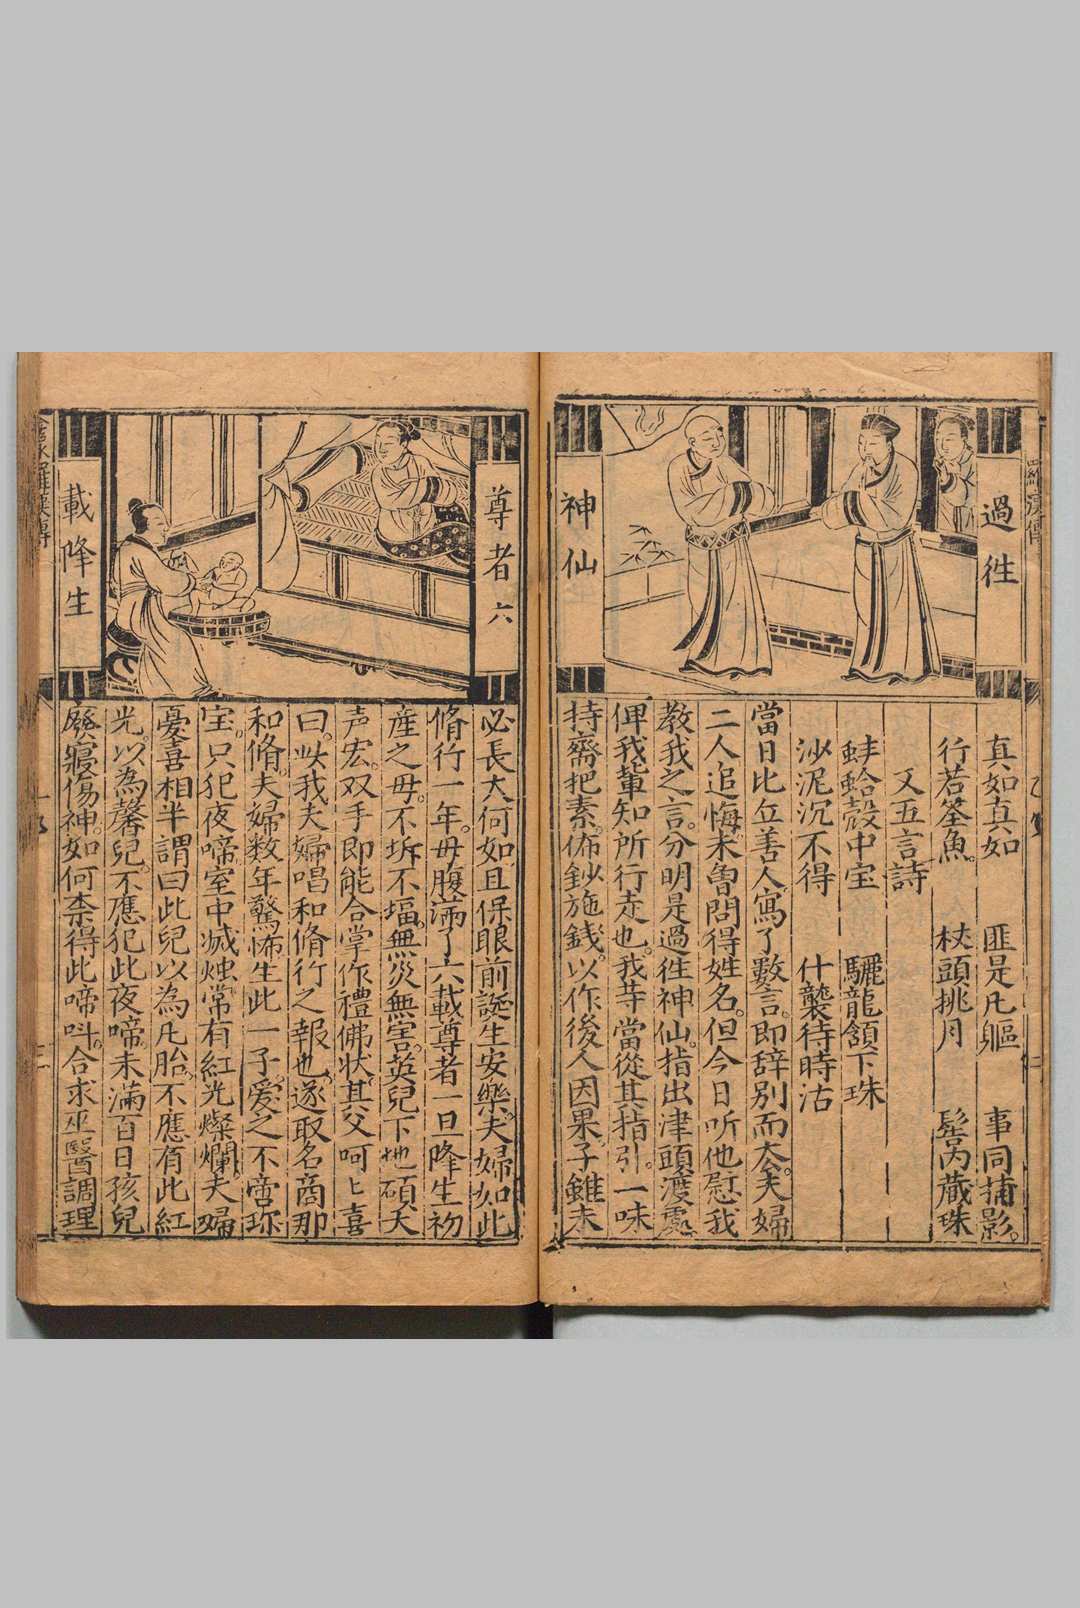 過徃
神仙
真如真如　匪是凡軀　事同捕影。
行若筌魚。　杖頭挑月　髻內藏珠
又五言詩
蚌蛤殼中宝　驪龍頷下珠
沙泥沉不得　什襲待時沽
當日比丘善人寫了數言。即辞別而去。夫婦
二人追悔。未曾問得姓名。但今日听他慰我
教我之言。分明是過徃神仙。指出津頭渡處
俾我輩知所行走也。我等當從其指引。一味
持齋把素。佈鈔施錢。以作後人因果。子雖未
尊者六
載降生
必長大何如。且保眼前誕生安樂。夫婦如此
脩行一年。毋腹滿了六載尊者一旦降生初
產之毋。不坼不堛。無災無害。英兒下地碩大
声宏。双手即能合掌作禮佛狀。其父呵〻喜
曰。此我夫婦唱和脩行之報也。遂取名啇那
和脩。夫婦数年驚怖生此一子。爱之不啻珎
宝。只犯夜啼室中滅烛。常有紅光燦爛。夫婦
憂喜相半謂曰此兒以為凡胎。不應有此紅
光。以為馨兒。不應犯此夜啼。未滿百日孩兒
廢寢傷神。如何柰得此啼呌。合求巫醫調理
羅漢傳